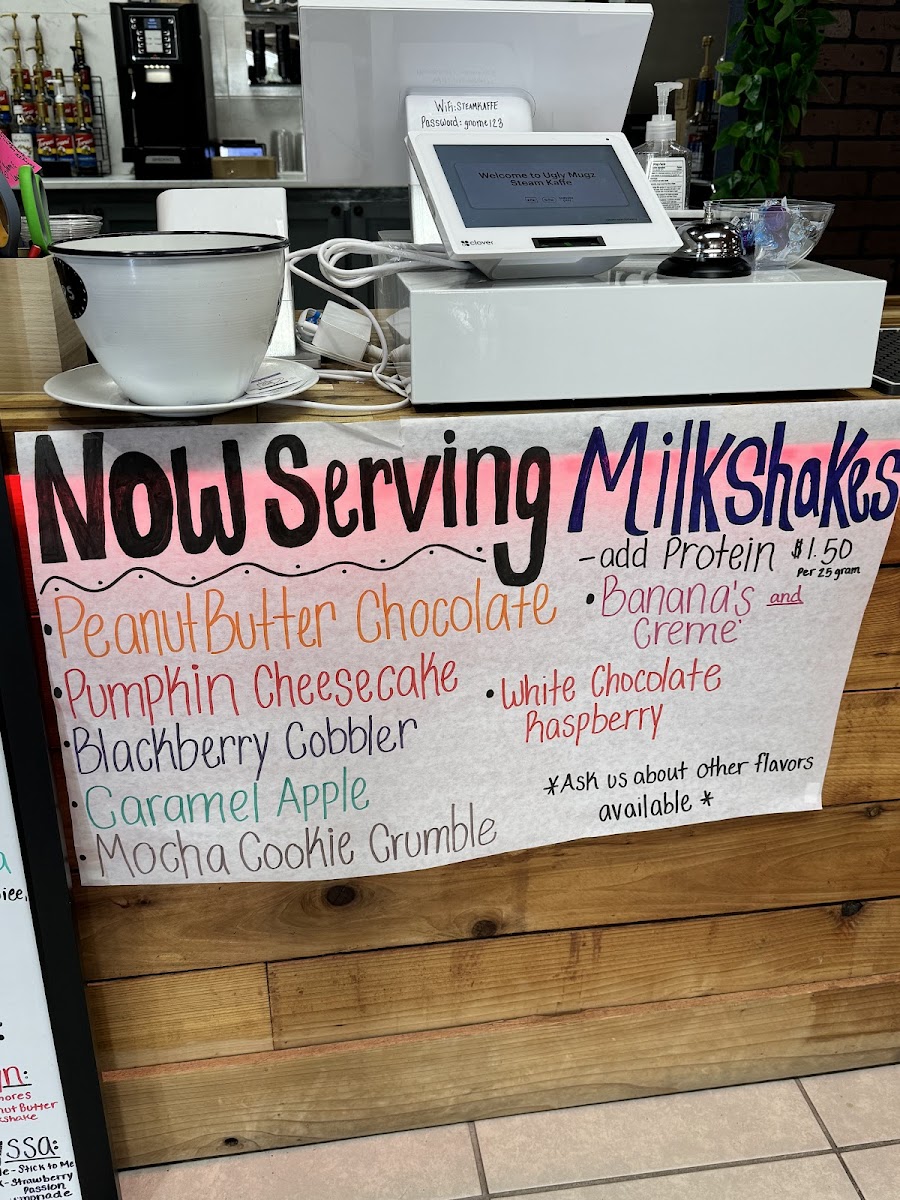 WiFi: STEAMKAFFE
Password: gnome123
Welcome to Ugly Mugz
Steam Kaffe
clover
Now Serving Milkshakes
- add Protein $1.50
Per 25 gram
• PeanutButter Chocolate
• Pumpkin Cheesecake
• Blackberry Cobbler
• Caramel Apple
• Mocha Cookie Crumble
• Banana's and
Creme
• White Chocolate
Raspberry
*Ask us about other flavors
available *
Stick to Me
Strawberry
Passion